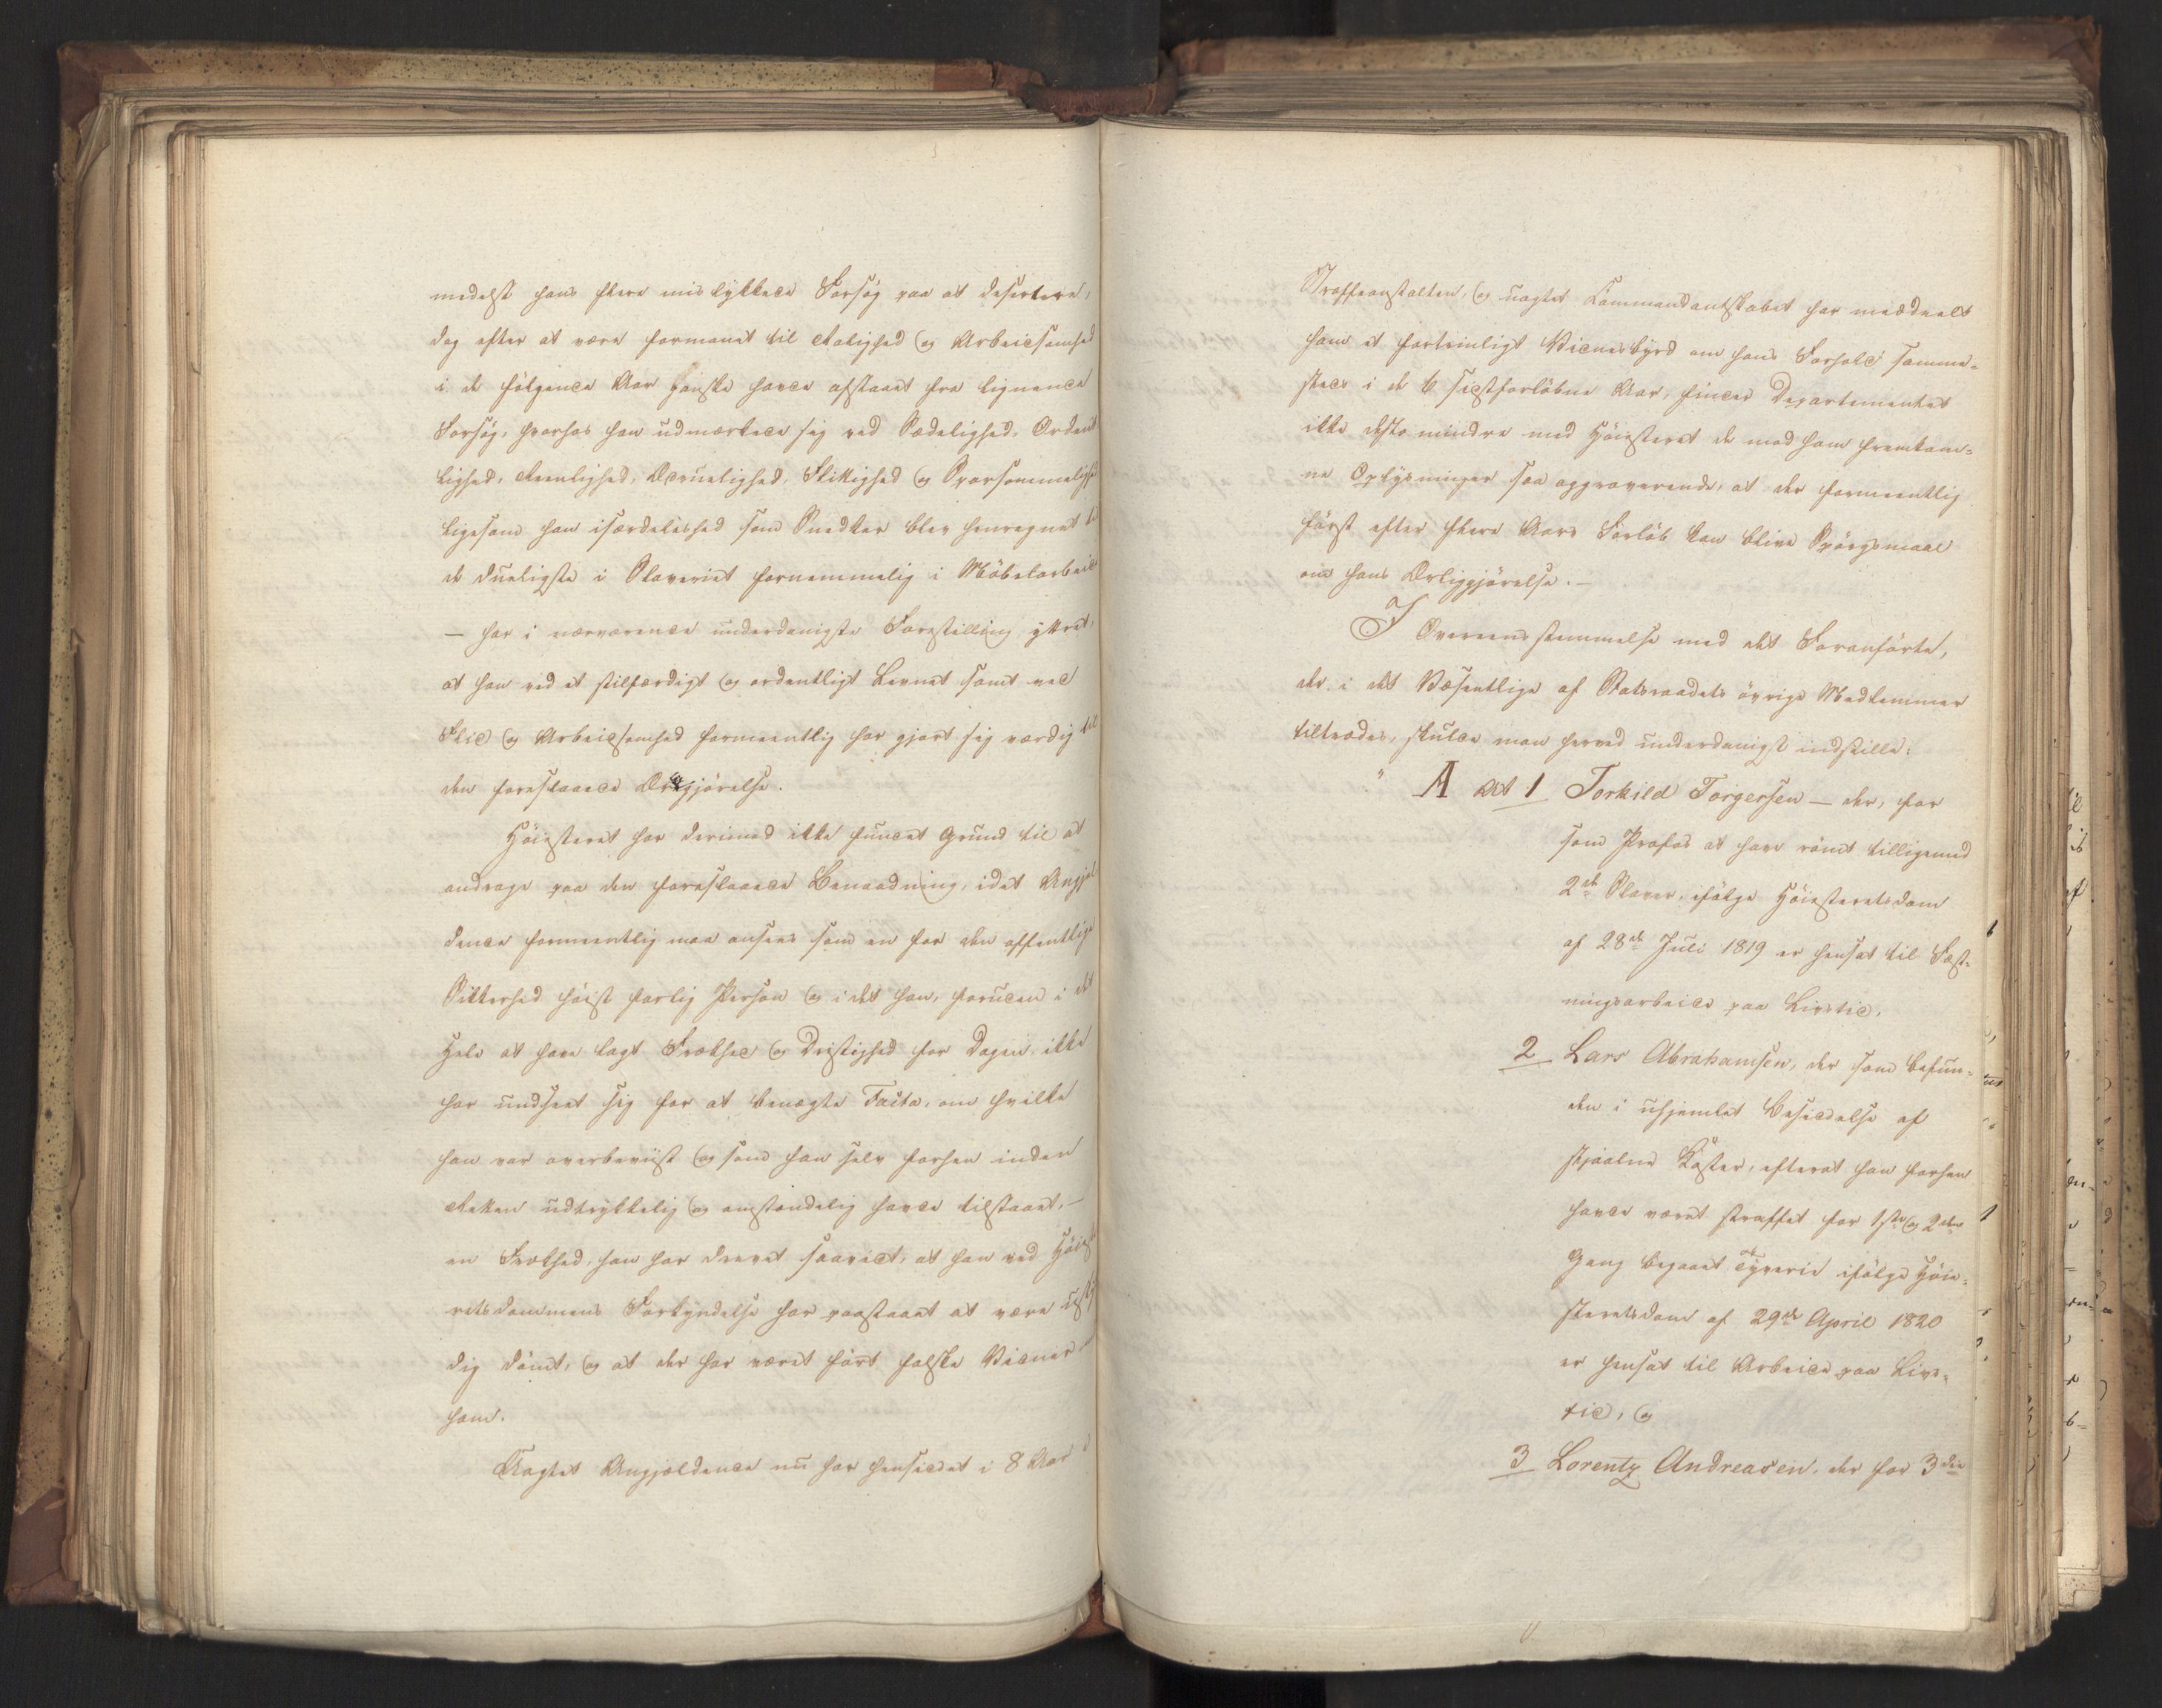 medelst hans flere mislykkede Forsøg paa at desertere,
dog efter at være formanet til Rolighed og Arbeidsomhed
i de følgende Aar ganske havde afstaaet fra lignende
Forsøg, hvorhos han udmærkede sig ved Sædelighed, Ordent
lighed, Reenlighed, Ædruelighed, Flittighed og Sparsommelighed
ligesom han isærdeleshed som Snedker blev henregnet til
de dueligste i Slaveriet fornemmelig i Møbelarbeide
— har i nærværende underdanigste Forestilling yttret,
at han ved et stilfærdigt og ordentligt Levnet samt ved
Flid og Arbeidsomhed formeentlig har gjort sig værdig til
den foreslaaede Ærligjørelse.
Høiesteret har derimod ikke fundet Grund til at
andrage paa den foreslaaede Benaadning, idet Angjæl
dende formeentlig maa ansees som en for den offentlige
Sikkerhed høist farlig Person og idet han, foruden i det
Hele at have lagt Frækhed og Dristighed for Dagen, ikke
har undseet sig for at benægte Facta, om hvilke
han var overbeviist og som han selv forhen inden
Retten udtrykkelig og omstændelig havde tilstaaet, —
en Frækhed, han har drevet saavidt, at han ved Høieste
retsdommens Forkyndelse har paastaaet at være uskyl
dig dømt, og at der har været ført falske Vidner mod
ham.
Uagtet Angjældende nu har hensiddet i 8 Aar i
Straffeanstalten, og uagtet Kommandantskabet har meddeelt
ham et fortrinligt Vidnesbyrd om hans Forhold samme-
steds i de 6 sidstforløbne Aar, finder Departementet
ikke desto mindre med Høiesteret de mod ham fremkom-
ne Oplysninger saa aggraverende, at der formeentlig
først efter flere Aars Forløb kan blive Spørgsmaal
om hans Ærliggjørelse. —
I Overeensstemmelse med det Foranførte,
der i det Væsentlige af Statsraadets øvrige Medlemmer
tiltrædes, skulde man herved underdanigst indstille:
" A At 1 Torkild Torgersen — der, for
som Profos at have rømt tilligemed
2de Slaver, ifølge Høiesteretsdom
af 28de Juli 1819 er hensat til Fæst-
ningsarbeide paa Livstid,
2 Lars Abrahamsen, der som befun-
den i uhjemlet Besiddelse af
stjaalne Koster, efterat han forhen
havde været straffet for 1ste og 2den
Gang begaaet Tyverie ifølge Høie-
steretsdom af 29de April 1820
er hensat til Arbeide paa Livs-
tid, og
3 Lorentz Andreasen, der for 3die